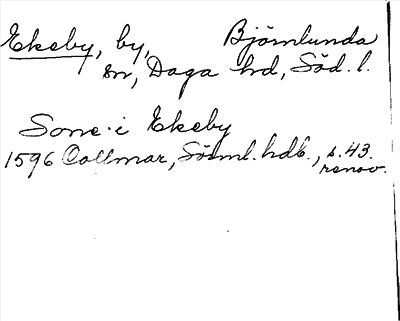 Ekeby, by, Björnlunda
sn, Daga hd, Söd. l.
Sone i Ekeby
1596 Collmar, Söml. hdb., s. 43.
renov.